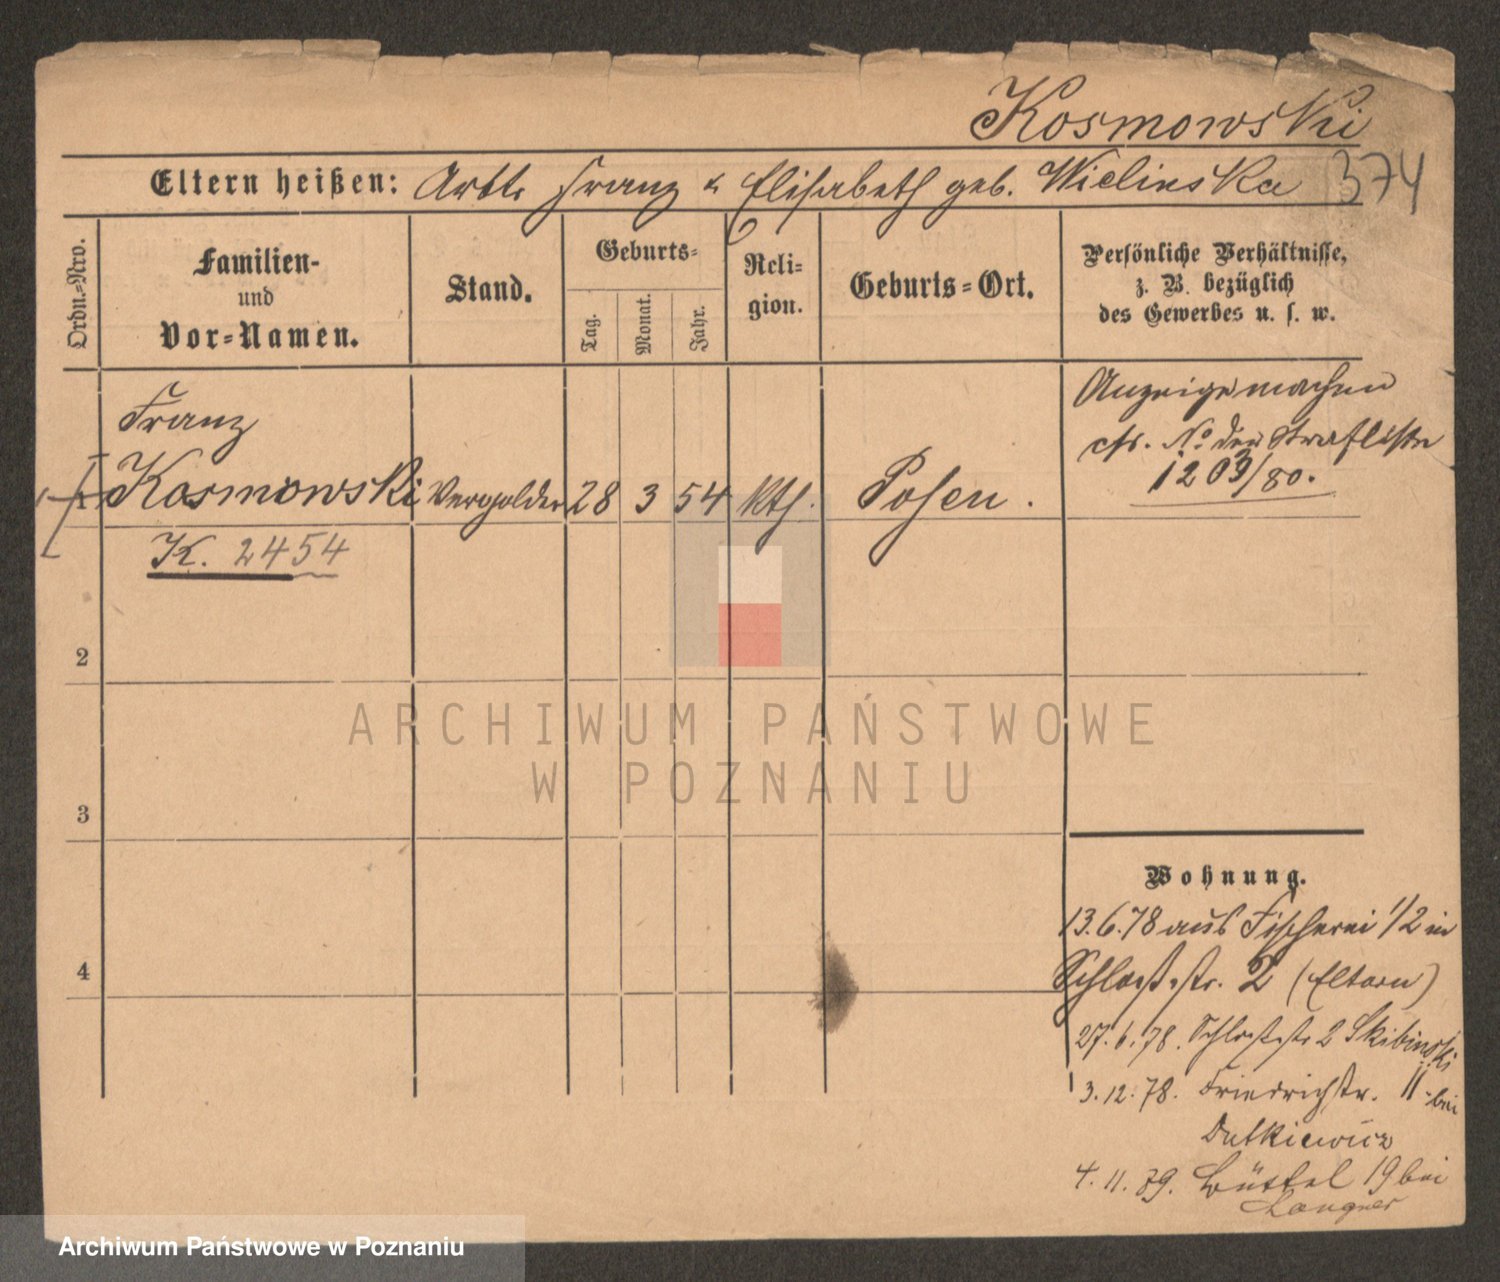 Kosmowski
374
Eltern heißen: Franz & Elisabeth geb. Wielinska
Ordn.-Nro.
Familien-
und
Vor-Namen.
Stand.
Geburts-
Tag.
Monat.
Jahr.
Reli-
gion.
Geburts-Ort.
Persönliche Verhältnisse,
z. B. bezüglich
des Gewerbes u. s. w.
Franz
1 Kosmowski Vergolder 28 3 54 kth. Posen.
K. 2454
Anzeige machen
cfr. No der Strafliste
1203/80.
2
3
4
Wohnung.
13.6.78 aus Fischerei 1/2 in
Schloßstr. 2 (Eltern)
27.6.78. Schloßstr 2 Skibinski
3.12.78. Friedrichstr. 11 bei
Dutkiewicz
4.11.79. Büttel 19 bei
Langner
ARCHIWUM PAŃSTWOWE
W POZNANIU
Archiwum Państwowe w Poznaniu